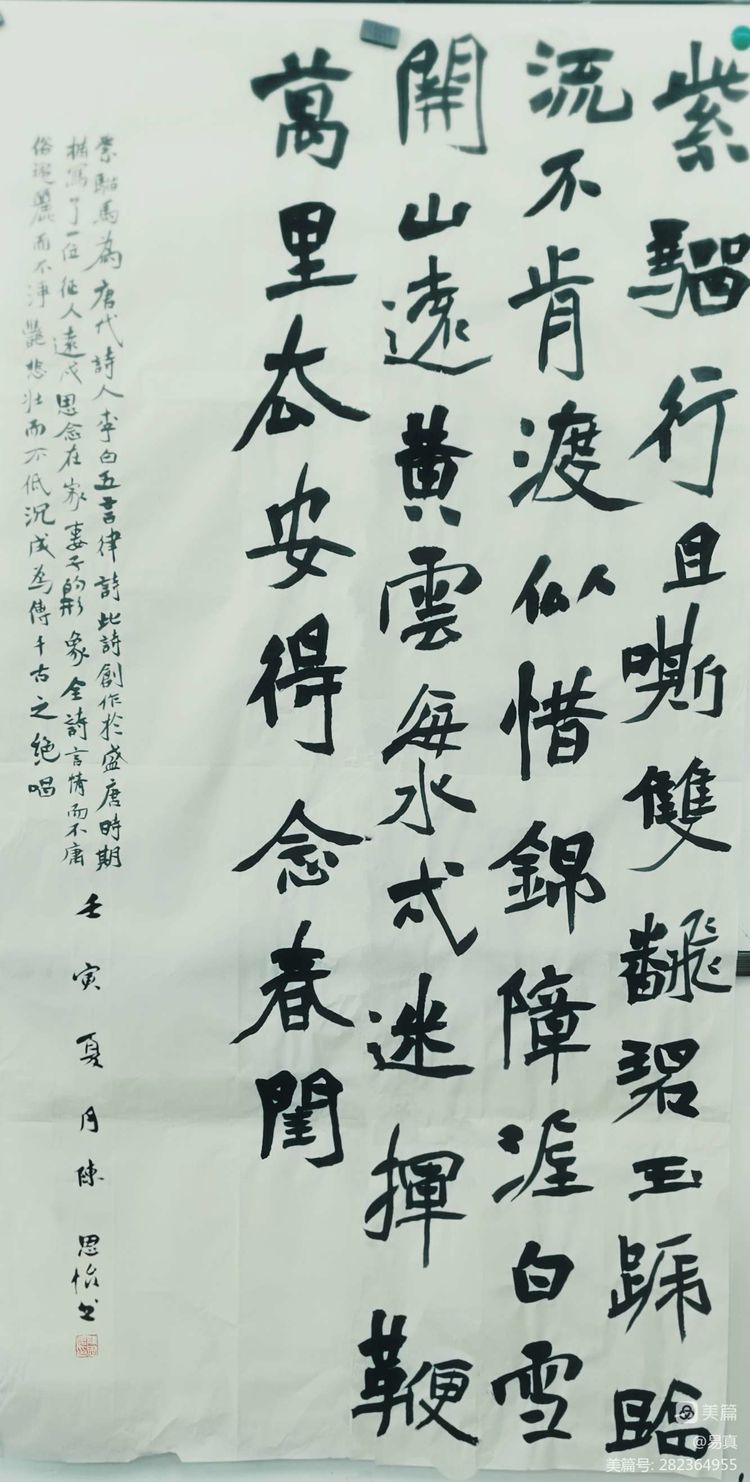 紫騮行且嘶雙飜碧玉蹄臨
流不肯渡似惜錦障泥白雪
開山遠黃雲海戍迷揮鞭
萬里去安得念春閨
紫騮馬為唐代詩人李白五言律詩此詩創作於盛唐時期
描寫了一位征人遠戍思念在家妻子的形象全詩言情而不庸
俗瑰麗而不浮豔悲壯而不低沉成為傳千古之絕唱
壬寅夏月陳思怡书
美篇
@易真
美篇号: 282364955